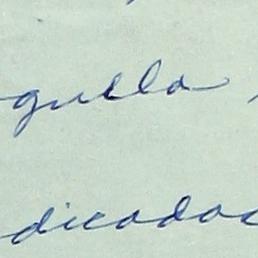 quella,
dicados